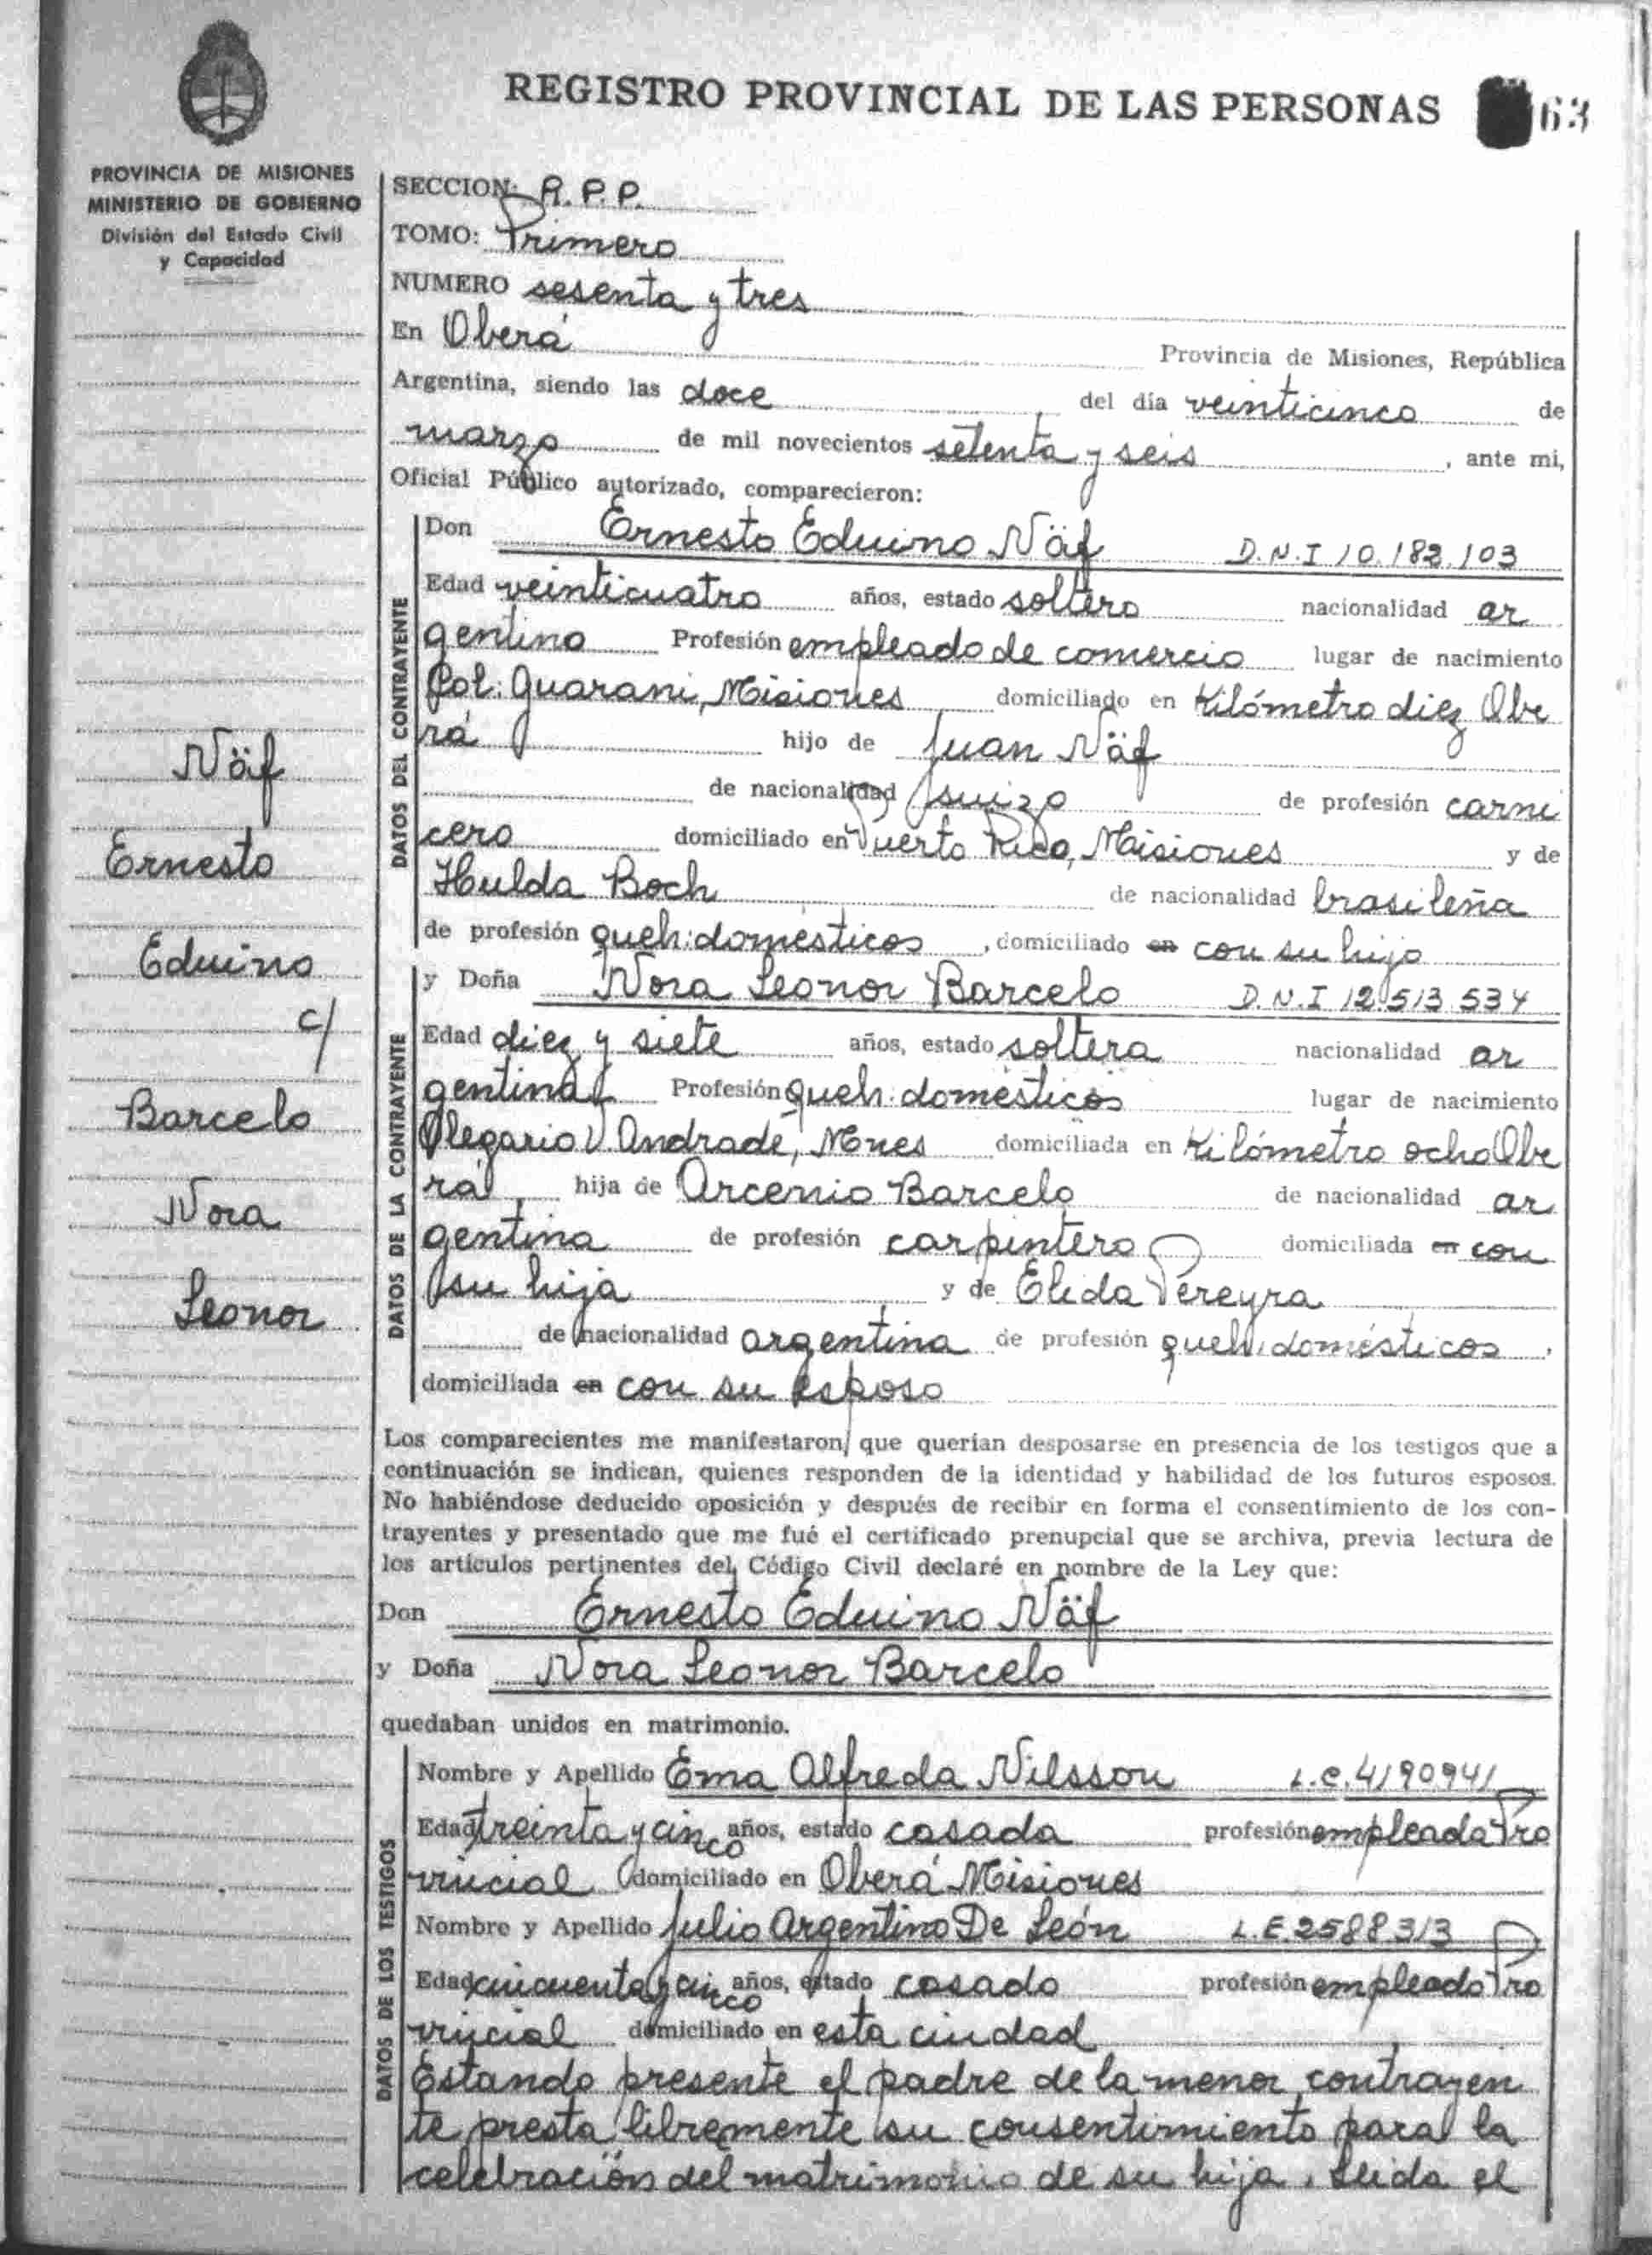 REGISTRO PROVINCIAL DE LAS PERSONAS 63
PROVINCIA DE MISIONES
MINISTERIO DE GOBIERNO
División del Estado Civil
y Capacidad
SECCION: R.P.P.
TOMO: Primero
NUMERO sesenta y tres
En Oberá Provincia de Misiones, República
Argentina, siendo las doce del día veinticinco de
marzo de mil novecientos setenta y seis, ante mi,
Oficial Público autorizado, comparecieron:
DATOS DEL CONTRAYENTE
Don Ernesto Eduino Näf D.N.I 10.182.103
Edad veinticuatro años, estado soltero nacionalidad ar
gentino Profesión empleado de comercio lugar de nacimiento
Col: Guarani, Misiones domiciliado en Kilómetro diez Obe
rá hijo de Juan Näf
de nacionalidad suizo de profesión carni
cero domiciliado en Puerto Rico, Misiones y de
Hulda Boch de nacionalidad brasileña
de profesión queh: domésticos, domiciliado en con su hijo
DATOS DE LA CONTRAYENTE
y Doña Nora Leonor Barcelo D.N.I 12.513.534
Edad diez y siete años, estado soltera nacionalidad ar
gentina Profesión queh: domésticos lugar de nacimiento
Olegario V. Andrade, Mnes domiciliada en Kilómetro ocho Obe
rá, hija de Arcenio Barcelo de nacionalidad ar
gentina de profesión carpintero domiciliada en con
su hija y de Elida Pereyra
de nacionalidad argentina de profesión queh: domésticos,
domiciliada en con su esposo
Los comparecientes me manifestaron, que querían desposarse en presencia de los testigos que a
continuación se indican, quienes responden de la identidad y habilidad de los futuros esposos.
No habiéndose deducido oposición y después de recibir en forma el consentimiento de los con-
trayentes y presentado que me fué el certificado prenupcial que se archiva, previa lectura de
los artículos pertinentes del Código Civil declaré en nombre de la Ley que:
Don Ernesto Eduino Näf
y Doña Nora Leonor Barcelo
quedaban unidos en matrimonio.
DATOS DE LOS TESTIGOS
Nombre y Apellido Ema Alfreda Nilsson L.C. 4190941
Edad treinta y cinco años, estado casada profesión empleada Pro
vincial domiciliado en Oberá Misiones
Nombre y Apellido Julio Argentino De León L.E. 2588313
Edad cincuenta y cinco años, estado casado profesión empleado Pro
vincial domiciliado en esta ciudad
Estando presente el padre de la menor contrayen
te presta libremente su consentimiento para la
celebración del matrimonio de su hija. Leida el
Näf
Ernesto
Eduino
c/
Barcelo
Nora
Leonor